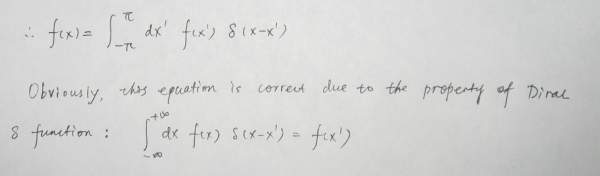 ∴ f(x) = ∫_{-π}^{π} dx' f(x') δ(x-x')
Obviously, this equation is correct due to the property of Dirac
δ function : ∫_{-∞}^{+∞} dx f(x) δ(x-x') = f(x')